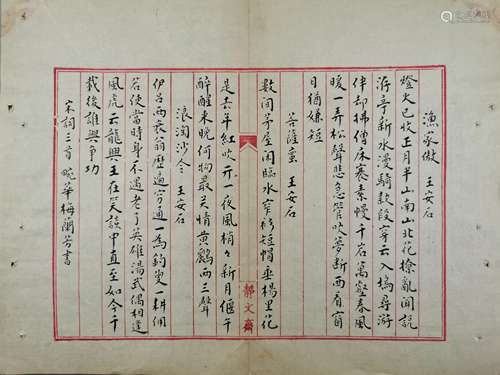 漁家傲　王安石
燈火已收正月半山南山北花撩亂聞說
洊亭新水漫騎款段穿云入塢尋游
伴却拂僧床褰素幔千岩萬壑春風
暖一弄松聲悲急管吹夢斷西看窗
日猶嫌短
菩薩蠻　王安石
數间茅屋闲臨水窄衫短帽垂楊里花
是去年红吹开一夜風梢梢新月偃午
醉醒來晚何物最关情黄鸝两三聲
浪淘沙令　王安石
伊吕两衰翁歷遍穷通一為釣叟一耕佣
若使當時身不遇老了英雄湯武偶相逢
風虎云龍興王在笑談中直至如今千
載後誰與爭功
宋詞三首　畹華梅蘭芳書
靜文齋